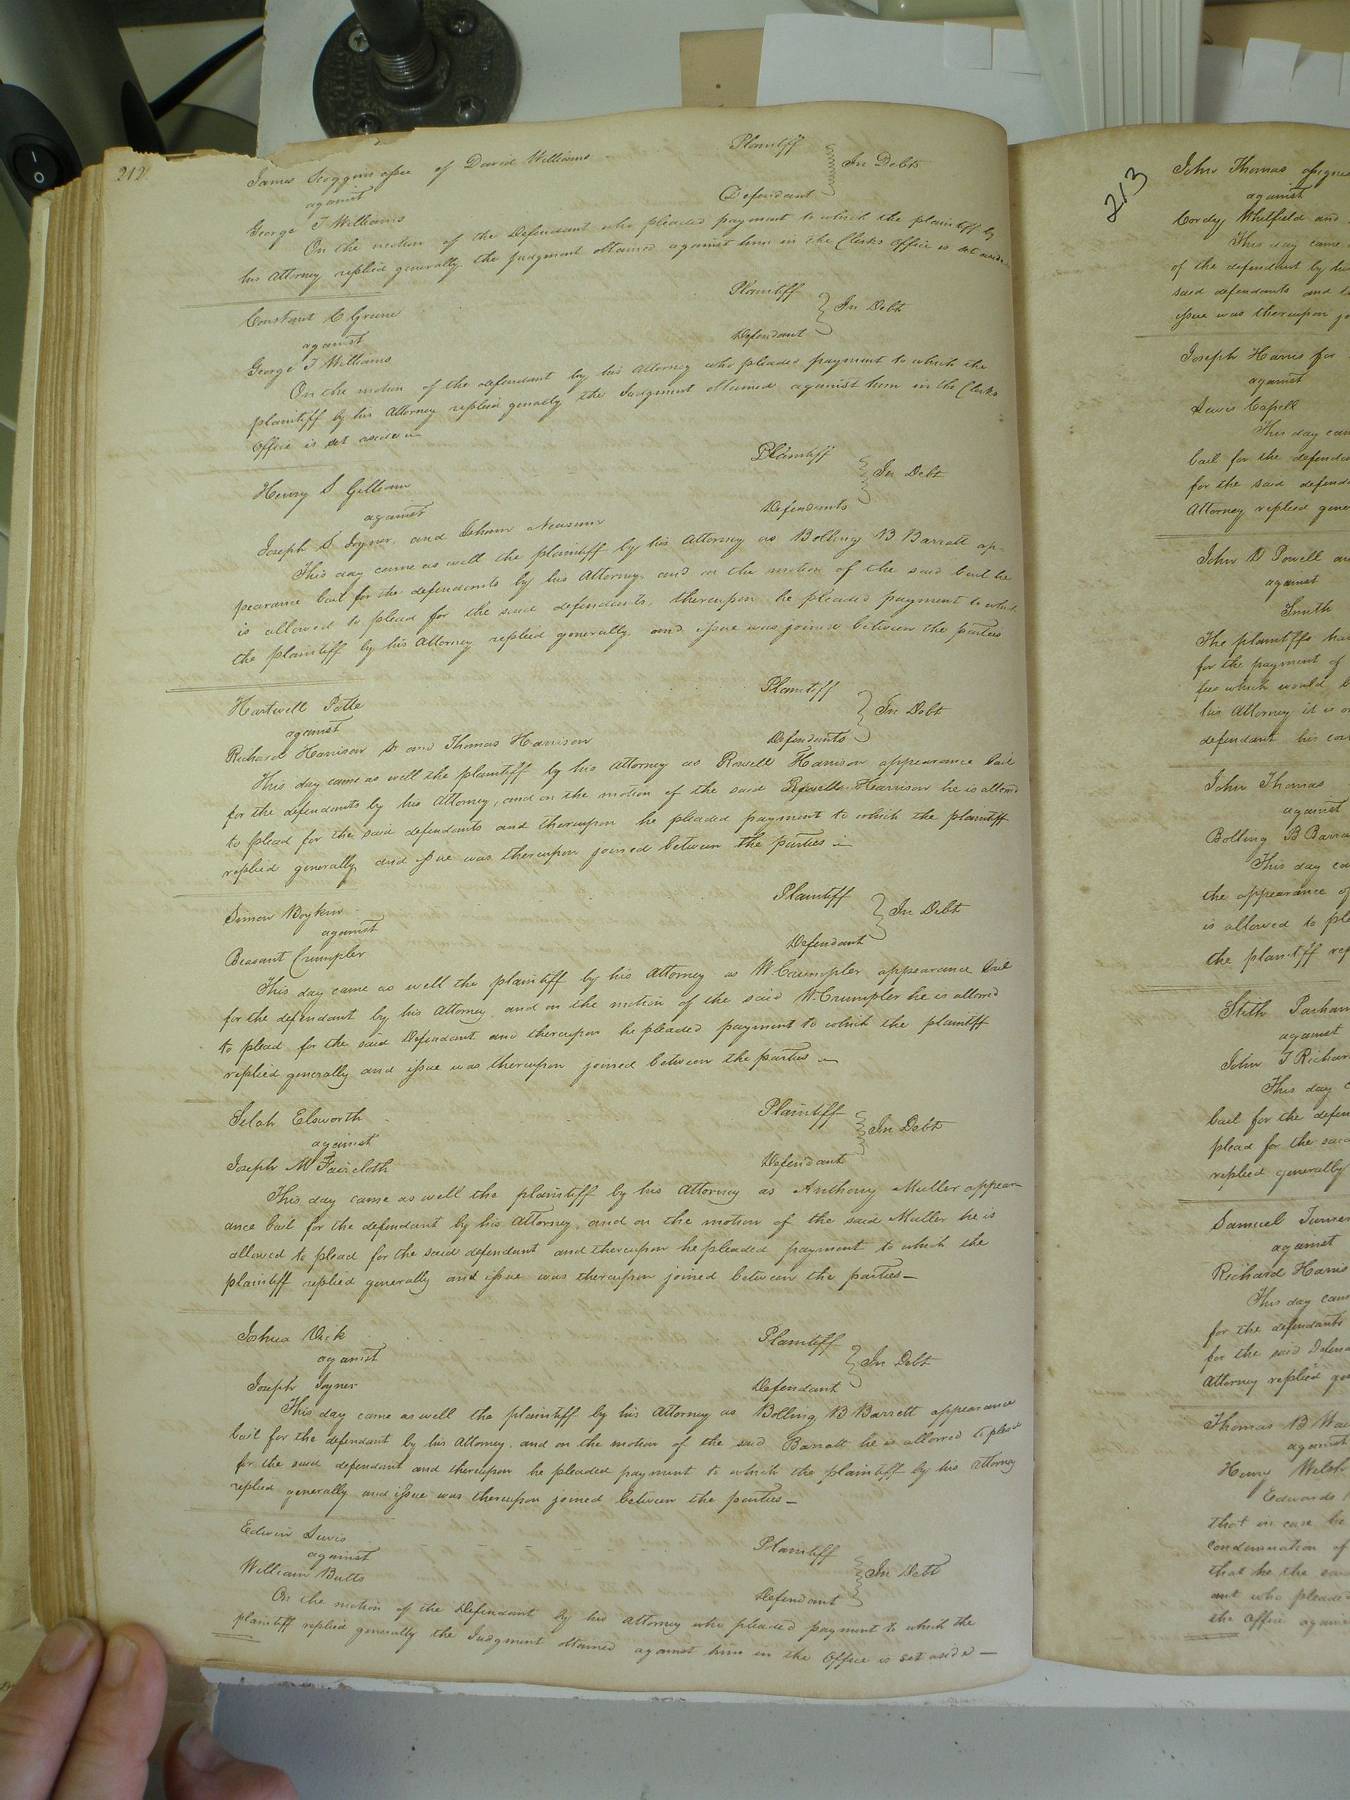 212
James Scoggin assee of David Williams Plaintiff
against In Debt
George T Williams Defendant
On the motion of the Defendant who pleaded payment to which the plaintiff by
his Attorney replied generally the judgment obtained against him in the Clerks Office is set aside
Constant C Greene Plaintiff
against In Debt
George T Williams Defendant
On the motion of the defendant by his Attorney who pleaded payment to which the
plaintiff by his Attorney replied genally the Judgment obtained against him in the Clerks
Office is set aside
Henry S Gilliam Plaintiff
against In Debt
Joseph S Joyner, and Isham Newsum Defendants
This day came as well the plaintiff by his Attorney as Bolling B Barrett ap-
pearance bail for the defendants by his Attorney, and on the motion of the said bail he
is allowed to plead for the said defendants, thereupon he pleaded payment to which
the plaintiff by his Attorney replied generally and issue was joined between the parties
Hartwell Potte Plaintiff
against In Debt
Richard Harrison Sr and Thomas Harrison Defendants
This day came as well the plaintiff by his Attorney as Rowell Harrison appearance bail
for the defendants by his Attorney, and on the motion of the said Harrison he is allowed
to plead for the said defendants and thereupon he pleaded payment to which the plaintiff
replied generally and issue was thereupon joined between the parties —
Simon Boykin Plaintiff
against In Debt
Beasant Crumpler Defendant
This day came as well the plaintiff by his Attorney as W. Crumpler appearance bail
for the defendant by his Attorney, and on the motion of the said W. Crumpler he is allowed
to plead for the said Defendant and thereupon he pleaded payment to which the plaintiff
replied generally and issue was thereupon joined between the parties —
Selah Elsworth Plaintiff
against In Debt
Joseph M Faircloth Defendant
This day came as well the plaintiff by his Attorney as Anthony Muller appear-
ance bail for the defendant by his Attorney, and on the motion of the said Muller he is
allowed to plead for the said defendant and thereupon he pleaded payment to which the
plaintiff replied generally and issue was thereupon joined between the parties —
Joshua Vick Plaintiff
against In Debt
Joseph Joyner Defendant
This day came as well the plaintiff by his Attorney as Bolling B Barrett appearance
bail for the defendant by his Attorney, and on the motion of the said Barrett he is allowed to plead
for the said defendant and thereupon he pleaded payment to which the plaintiff by his Attorney
replied generally and issue was thereupon joined between the parties —
Edwin Lewis Plaintiff
against In Debt
William Butts Defendant
On the motion of the Defendant by his Attorney who pleaded payment to which the
plaintiff replied generally the Judgment obtained against him in the Office is set aside —
213
John Thomas
against
Cordy Whitfield and
This day came
of the defendant by his
said defendants and
issue was thereupon
Joseph Harris for
against
Lewis Capell
This day
bail for the
for the said
Attorney replied
John D Powell
against
Smith
The plaintiffs
for the payment of
fees which would
his Attorney it is
defendant his
John Thomas
against
Bolling B
This day
the appearance
is allowed to
the plaintiff
Stith Parham
against
John T
This day
bail for the
plead for the said
replied generally
Samuel
against
Richard Harris
This day
for the defendants
for the said
Attorney replied
Thomas B
against
Henry Welsh
Edwards
that in case he
condemnation of
that he the said
ant who pleaded
the Office